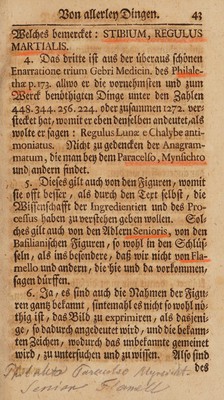 Von allerley Dingen. 43
Welches bemercket: STIBIUM, REGULUS
MARTIALIS.
4. Das dritte ist aus der überaus schönen
Enarratione trium Gebri Medicin. des Philale-
thæ p.173. allwo er die vornehmsten und zum
Werck benöthigten Dinge unter den Zahlen
448. 344. 256. 224. oder zusammen 1272. ver-
stecket hat, womit er eben denselben andeutet, als
wolte er sagen: Regulus Lunæ e Chalybe anti-
moniatus. Nicht zu gedencken der Anagram-
matum, die man bey dem Paracelso, Mynsichto
und andern findet.
5. Dieses gilt auch von den Figuren, womit
sie offt besser, als durch den Text selbst, die
Wissenschafft der Ingredientien und des Pro-
cessus haben zu verstehen geben wollen. Sol-
ches gilt auch von den Adlern Senioris, von den
Basilianischen Figuren, so wohl in den Schlüs-
seln, als ins besondere, daß wir nicht von Fla-
mello und andern, die hie und da vorkommen,
sagen dürffen.
6. Ja, es sind auch die Nahmen der Figu-
ren gantz bekannt, sintemahl es nicht so wohl nö-
thig ist, das Bild zu exprimiren, als dasjeni-
ge, so dadurch angedeutet wird, und die bekann-
ten Zeichen, wodurch das unbekannte gemeinet
wird, zu untersuchen und zu wissen. Also sind
des
Philaletha Paracelsus Mynsicht
Senioris Flamell